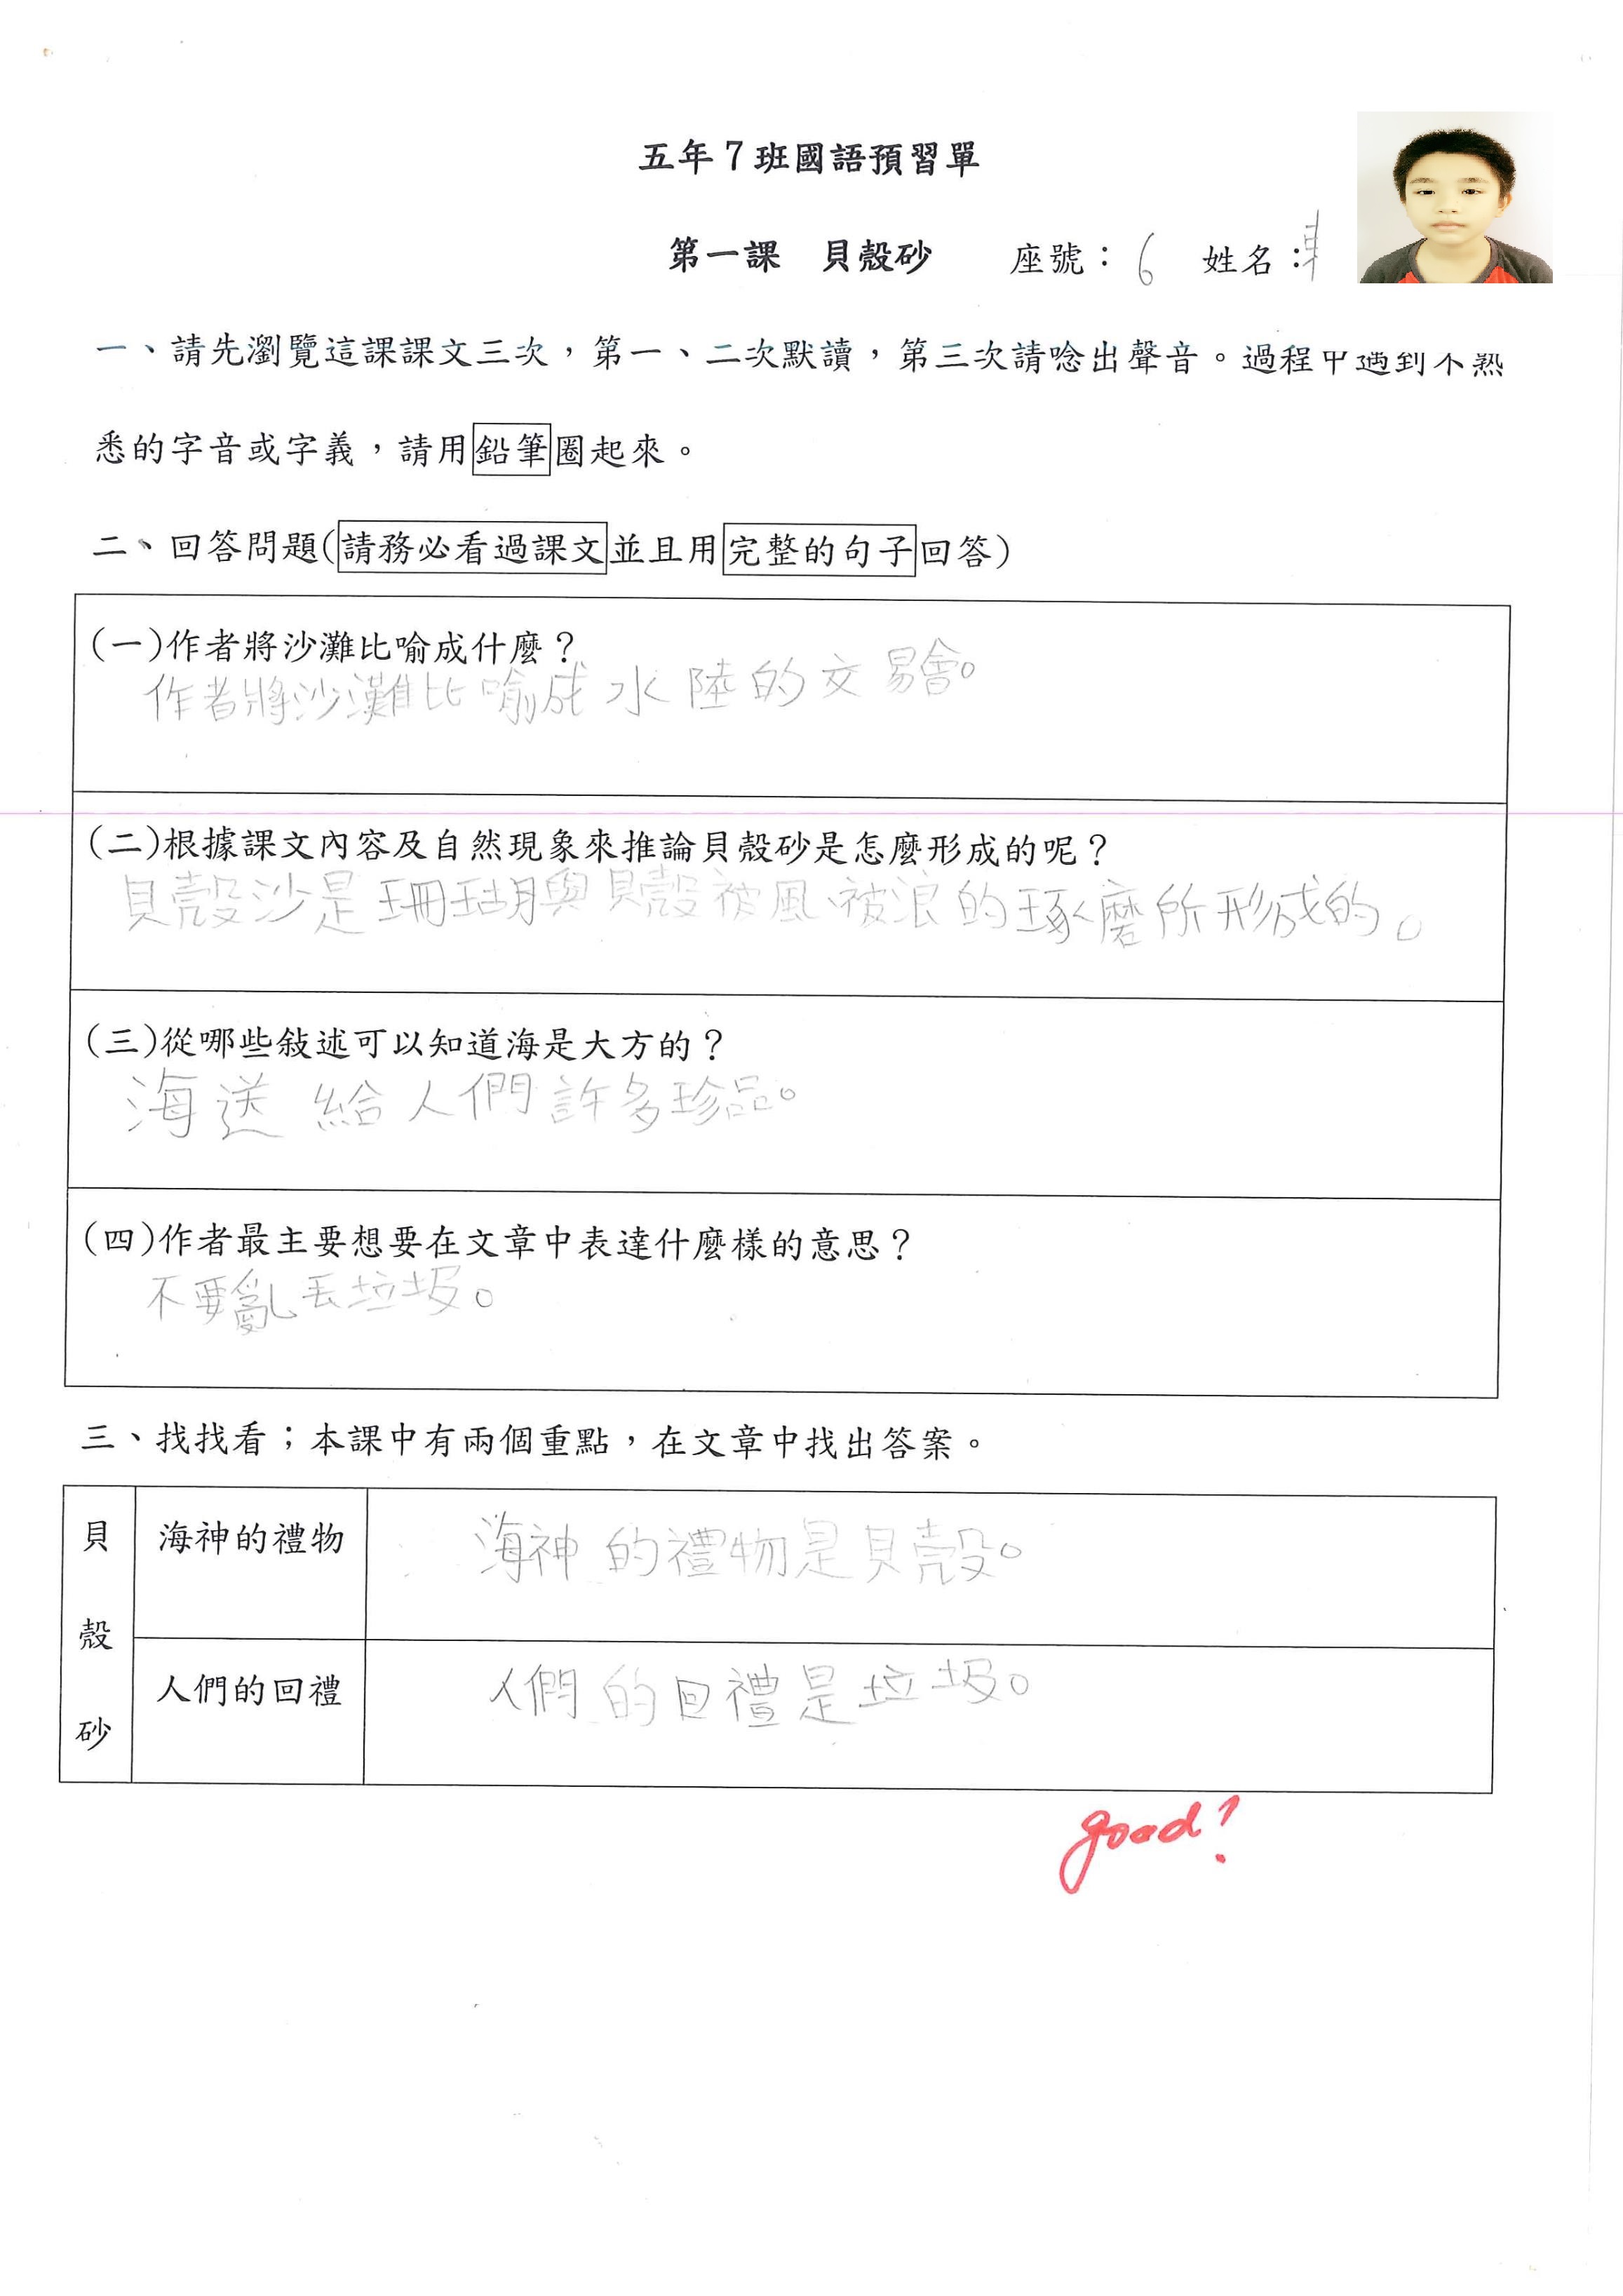 五年7班國語預習單
第一課 貝殼砂 座號：6 姓名：
一、請先瀏覽這課課文三次，第一、二次默讀，第三次請唸出聲音。過程中遇到不熟
悉的字音或字義，請用鉛筆圈起來。
二、回答問題(請務必看過課文並且用完整的句子回答)
(一)作者將沙灘比喻成什麼？
作者將沙灘比喻成水陸的交易會。
(二)根據課文內容及自然現象來推論貝殼砂是怎麼形成的呢？
貝殼沙是珊瑚與貝殼被風、被浪的琢磨所形成的。
(三)從哪些敍述可以知道海是大方的？
海送給人們許多珍品。
(四)作者最主要想要在文章中表達什麼樣的意思？
不要亂丟垃圾。
三、找找看；本課中有兩個重點，在文章中找出答案。
貝殼砂
海神的禮物
海神的禮物是貝殼。
人們的回禮
人們的回禮是垃圾。
good!